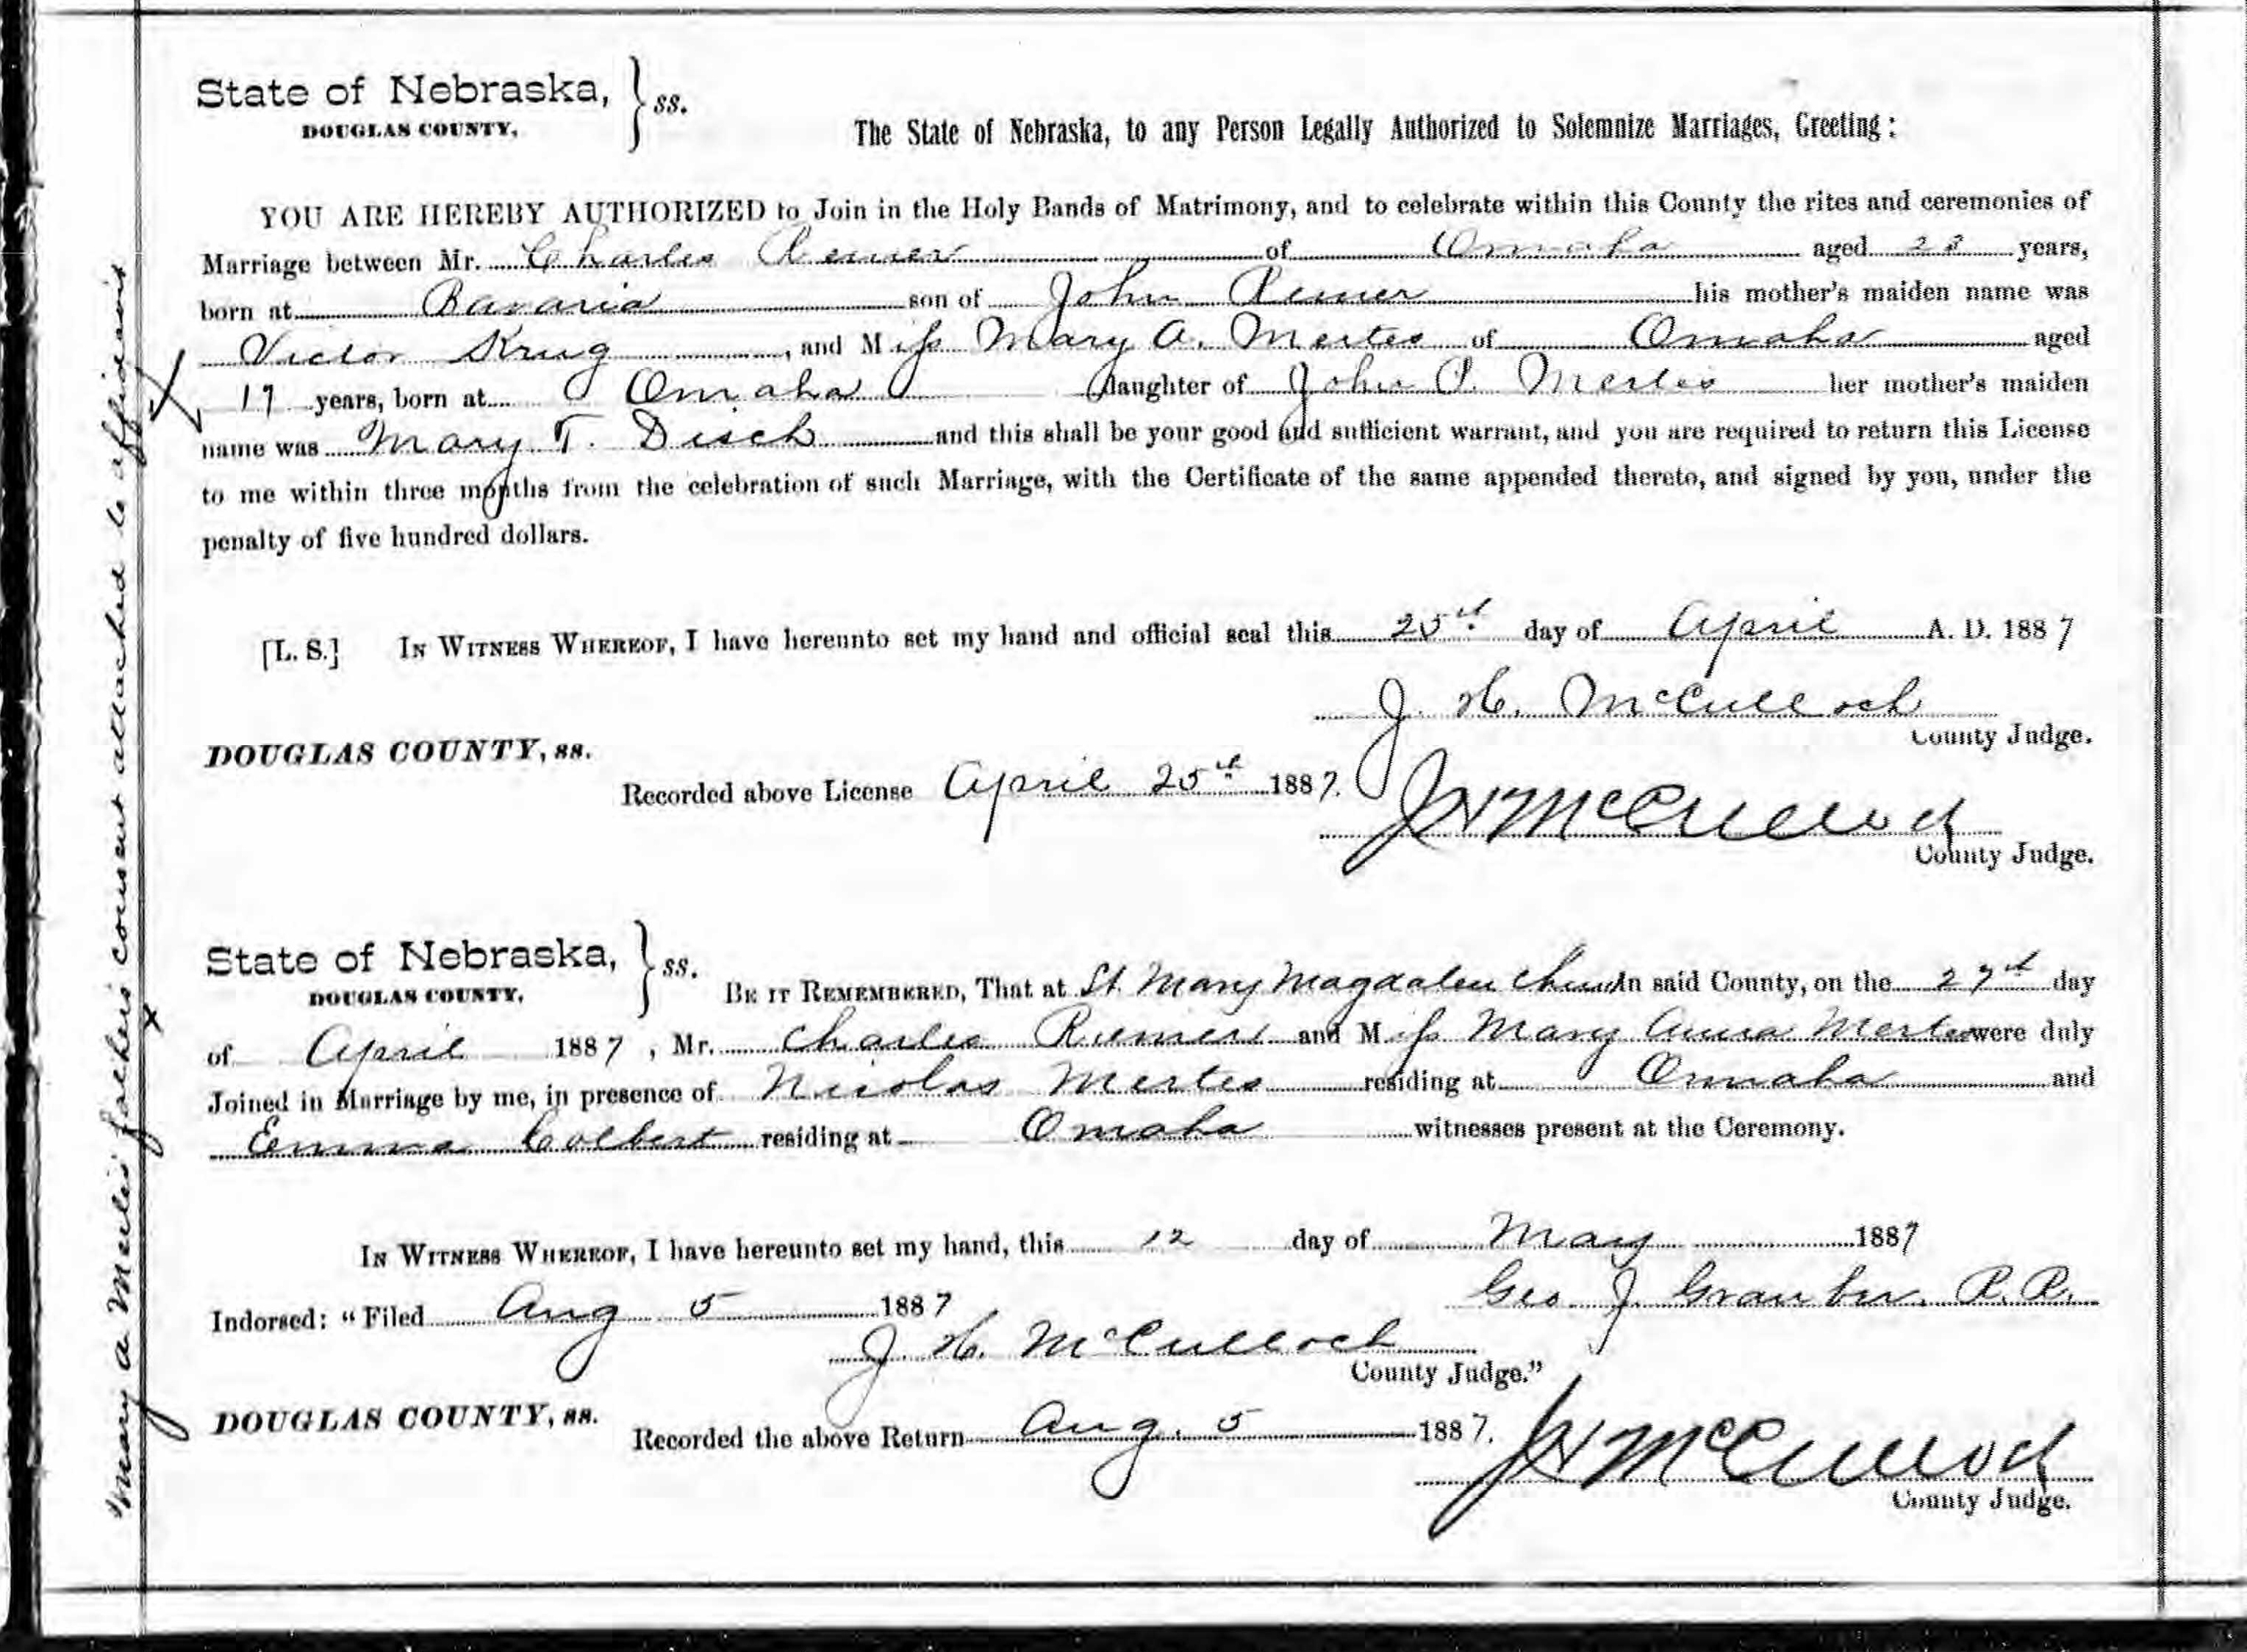 State of Nebraska, } ss.
DOUGLAS COUNTY,
The State of Nebraska, to any Person Legally Authorized to Solemnize Marriages, Greeting:
YOU ARE HEREBY AUTHORIZED to Join in the Holy Bands of Matrimony, and to celebrate within this County the rites and ceremonies of
Marriage between Mr. Charles Remer of Omaha aged 23 years,
born at Bavaria son of John Remer his mother's maiden name was
Victor Krug, and Miss Mary A. Mertes of Omaha aged
17 years, born at Omaha daughter of John P. Mertes her mother's maiden
name was Mary T. Disch and this shall be your good and sufficient warrant, and you are required to return this License
to me within three months from the celebration of such Marriage, with the Certificate of the same appended thereto, and signed by you, under the
penalty of five hundred dollars.
[L. S.] IN WITNESS WHEREOF, I have hereunto set my hand and official seal this 25th day of April A. D. 1887
J. H. McCulloch
County Judge.
DOUGLAS COUNTY, ss.
Recorded above License April 25th 1887.
J H McCulloch
County Judge.
State of Nebraska, } ss.
DOUGLAS COUNTY,
BE IT REMEMBERED, That at St Mary Magdalen Church in said County, on the 27th day
of April 1887, Mr. Charles and Miss Mary Anna Mertes were duly
Joined in Marriage by me, in presence of Nicolas Mertes residing at Omaha and
Emma Colbert residing at Omaha witnesses present at the Ceremony.
IN WITNESS WHEREOF, I have hereunto set my hand, this 12 day of May 1887
Geo. J. R. R.
Indorsed: "Filed Aug 5 1887
J. H. McCulloch
County Judge."
DOUGLAS COUNTY, ss.
Recorded the above Return Aug. 5 1887.
J H McCulloch
County Judge.
"Mary A Mertes' father's consent attached to affidavit